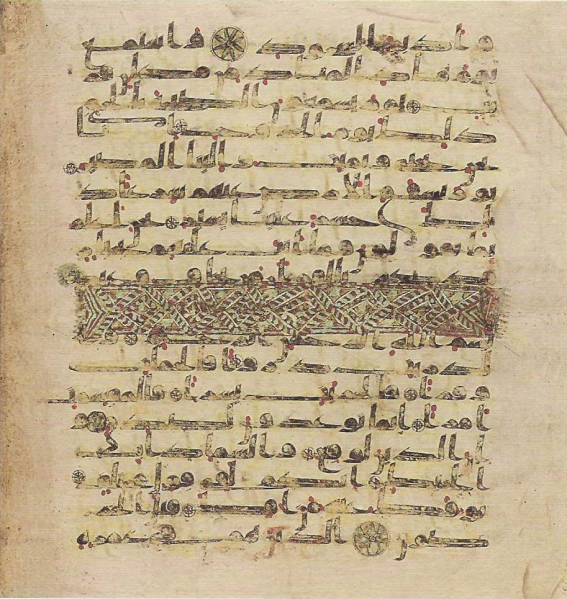 وادبر السجود واستمع
يوم يناد المناد من مكان قر
يب يوم يسمعون الصيحة بالحق
ذلك يوم الخروج انا
نحن نحي ونميت والينا المصير
يوم تشقق الارض عنهم سراعا
ذلك حشر علينا يسير نحن اعلم
بما يقولون وما انت عليهم بجبار
فذكر بالقران من يخاف وعيد
بسم الله الرحمن الرحيم
والذريت ذروا فالحملت
وقرا فالجريت يسرا فالمقسمت
امرا انما توعدون لصدق و
ان الدين لوقع والسما ذات
الحبك انكم لفي قول مختلف
يوفك عنه من افك قتل ال
خرصون الذين هم في غمرة